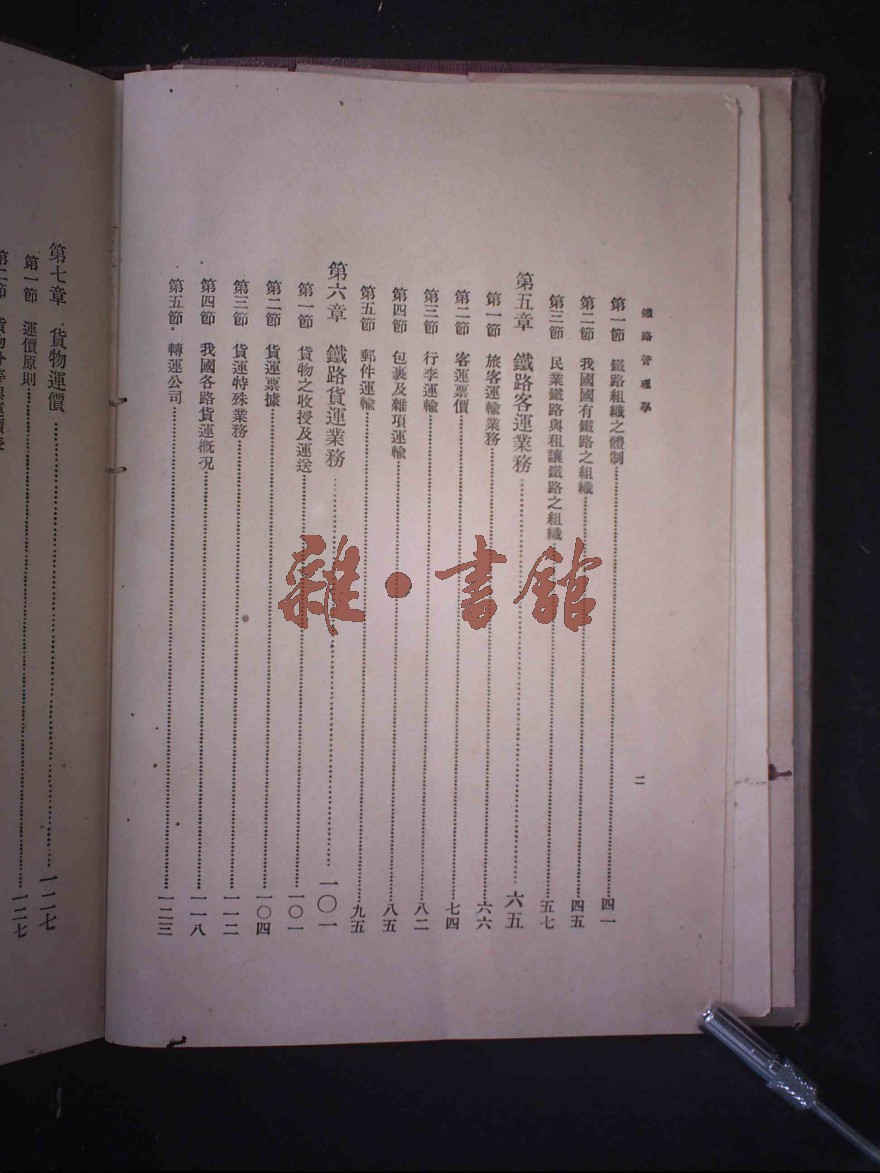 鐵路管理學
二
第一節 鐵路組織之體制……四一
第二節 我國國有鐵路之組織……四五
第三節 民業鐵路與租讓鐵路之組織……五七
第五章 鐵路客運業務……六五
第一節 旅客運輸業務……六六
第二節 客運票價……七四
第三節 行李運輸……八二
第四節 包裹及雜項運輸……八五
第五節 郵件運輸……九五
第六章 鐵路貨運業務……一〇一
第一節 貨物之收授及運送……一〇一
第二節 貨運票據……一〇四
第三節 貨運特殊業務……一一二
第四節 我國各路貨運概况……一一八
第五節 轉運公司……一二三
第七章 貨物運價……一二七
第一節 運價原則……一二七
雜·書館